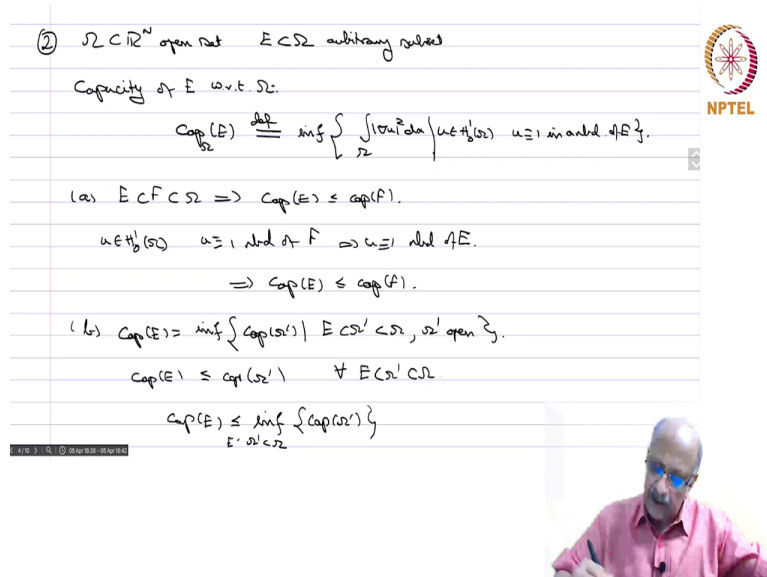 ② Ω ⊂ ℝᴺ open set E ⊂ Ω arbitrary subset.
Capacity of E w.r.t. Ω.
Cap_Ω(E) def= inf { ∫_Ω |∇u|² dx | u ∈ H₀¹(Ω) u ≡ 1 in a nbd. of E }.
(a) E ⊂ F ⊂ Ω ⇒ Cap(E) ≤ cap(F).
u ∈ H₀¹(Ω) u ≡ 1 nbd of F ⇒ u ≡ 1 nbd of E.
⇒ Cap(E) ≤ cap(F).
(b) Cap(E) = inf { Cap(Ω') | E ⊂ Ω' ⊂ Ω, Ω' open }.
Cap(E) ≤ cap(Ω') ∀ E ⊂ Ω' ⊂ Ω
Cap(E) ≤ inf {Cap(Ω')}
E ⊂ Ω' ⊂ Ω
NPTEL
4/10
05 Apr 18:38 - 05 Apr 18:42